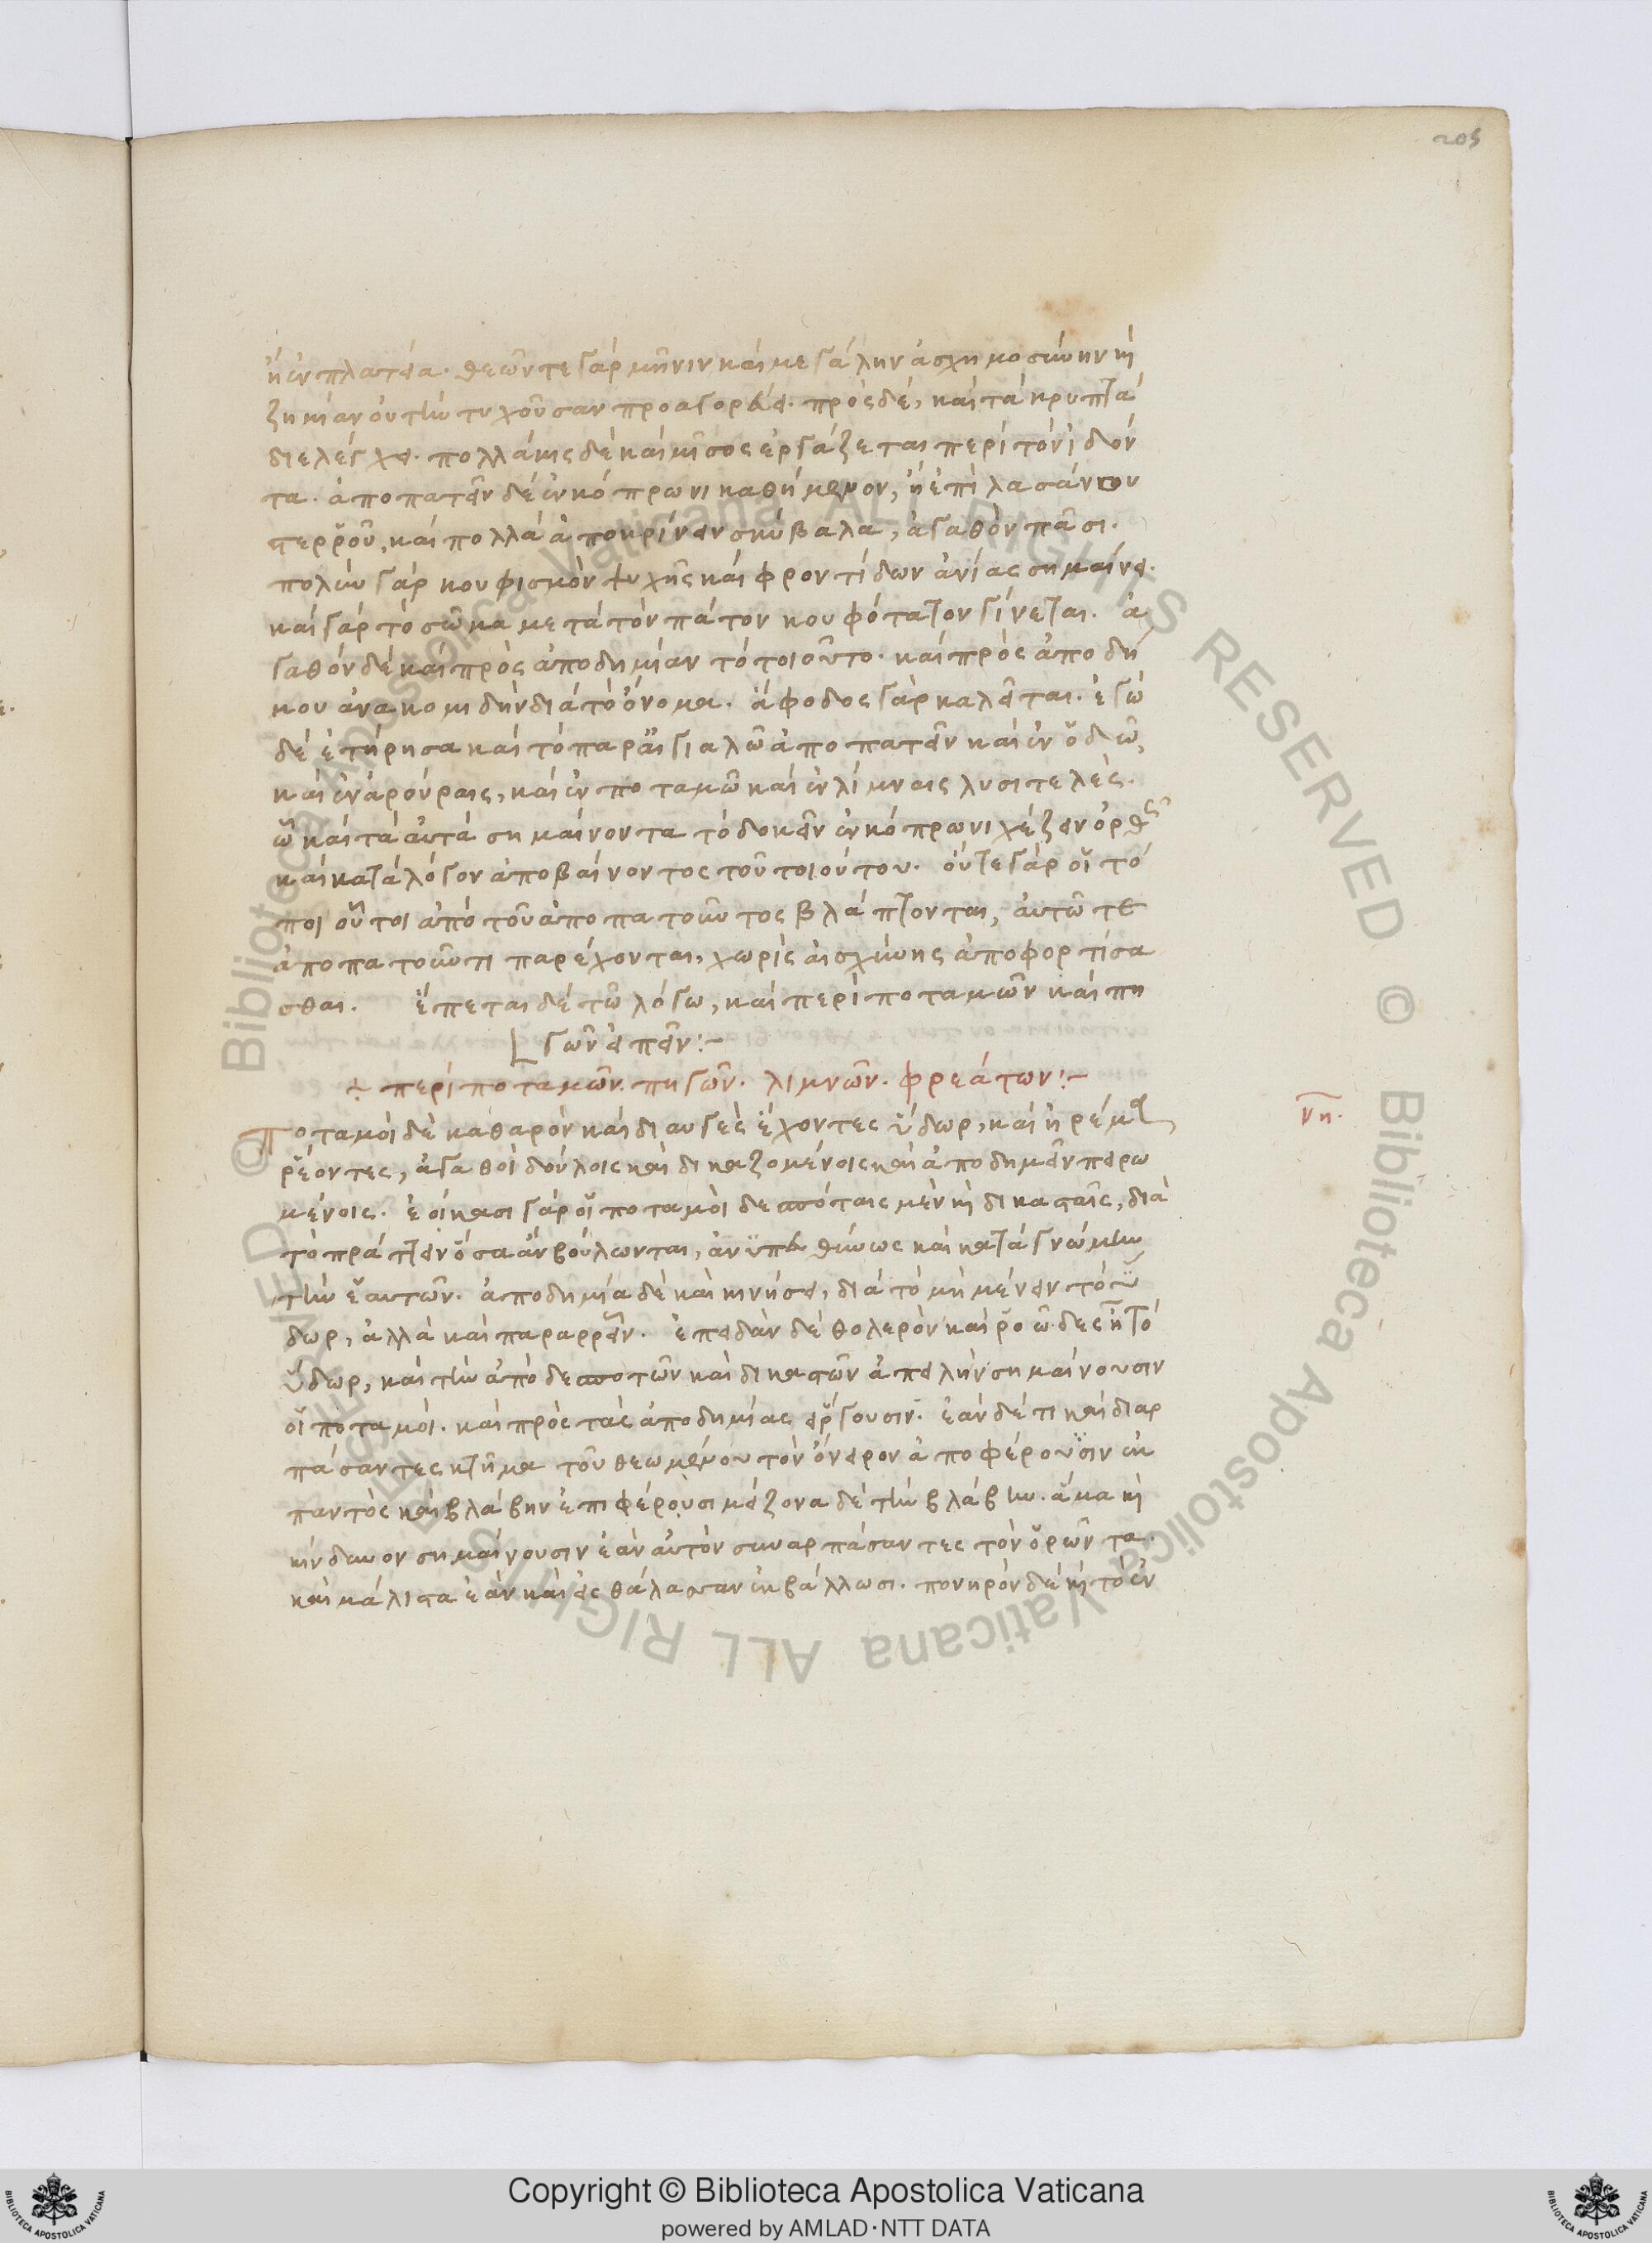 205
ἢ ἐν πλατεία. θεῶν τε γὰρ μῆνιν καὶ μεγάλην ἀσχημοσύνην καὶ
ζημίαν οὐ τὴν τυχοῦσαν προαγορεύει. πρὸς δὲ, καὶ τὰ κρυπτὰ
διελέγχει. πολλάκις δὲ καὶ μῖσος ἐργάζεται περὶ τὸν ἰδόν
τα. ἀποπατεῖν δὲ ἐν κόπρωνι καθήμενον, ἢ ἐπὶ λασάνου
στερροῦ, καὶ πολλὰ ἀποκρίνειν σκύβαλα, ἀγαθὸν πᾶσι.
πολὺν γὰρ κουφισμὸν ψυχῆς καὶ φροντίδων ἀνίας σημαίνει.
καὶ γὰρ τὸ σῶμα μετὰ τὸν πάτον κουφότατον γίνεται. ἀ
γαθὸν δὲ καὶ πρὸς ἀποδημίαν τὸ τοιοῦτο. καὶ πρὸς ἀποδή
μου ἀνακομιδὴν διὰ τὸ ὄνομα. ἄφοδος γὰρ καλεῖται. ἐγὼ
δὲ ἐτήρησα καὶ τὸ παρ' αἰγιαλῶ ἀποπατεῖν καὶ ἐν ὁδῶ,
καὶ ἐν ἀρούραις, καὶ ἐν ποταμῶ καὶ ἐν λίμναις λυσιτελές.
ὦ καὶ τὰ αὐτὰ σημαίνοντα τὸ δοκεῖν ἐν κόπρωνι χέζειν ὀρθῶς
καὶ κατὰ λόγον ἀποβαίνοντος τοῦ τοιούτου. οὔτε γὰρ οἱ τό
ποι οὗτοι ἀπὸ τοῦ ἀποπατοῦντος βλάπτονται, αὐτῶ τε
ἀποπατοῦντι παρέχονται, χωρὶς αἰσχύνης ἀποφορτίσα
σθαι. ἕπεται δὲ τῶ λόγω, καὶ περὶ ποταμῶν καὶ πη
γῶν εἰπεῖν:-
+ περὶ ποταμῶν. πηγῶν. λιμνῶν. φρεάτων:-
νη.
Ποταμοὶ δὲ καθαρὸν καὶ διαυγὲς ἔχοντες ὕδωρ, καὶ ἠρέμα
ῥέοντες, ἀγαθοὶ δούλοις καὶ δικαζομένοις καὶ ἀποδημεῖν πειρω
μένοις. ἐοίκασι γὰρ οἱ ποταμοὶ δεσπόταις μὲν καὶ δικασταῖς, διὰ
τὸ πράττειν ὅσα ἂν βούλωνται, ἀνυπευθύνως καὶ κατὰ γνώμην
τὴν ἑαυτῶν. ἀποδημία δὲ καὶ κινήσει, διὰ τὸ μὴ μένειν τὸ ὕ
δωρ, ἀλλὰ καὶ παραρρεῖν. ἐπειδὰν δὲ θολερὸν καὶ ῥοῶδες ἦ τὸ
ὕδωρ, καὶ τὴν ἀπὸ δεσποτῶν καὶ δικαστῶν ἀπειλὴν σημαίνουσιν
οἱ ποταμοί. καὶ πρὸς τὰς ἀποδημίας εἴργουσιν. ἐὰν δέ τι καὶ διαρ
πάσαντες κτῆμα τοῦ θεωμένου τὸν ὄνειρον ἀποφέρουσιν ἐκ
παντὸς καὶ βλάβην ἐπιφέρουσι μείζονα δὲ τὴν βλάβην. ἅμα καὶ
κίνδυνον σημαίνουσιν ἐὰν αὐτὸν συναρπάσαντες τὸν ὁρῶντα.
καὶ μάλιστα ἐὰν καὶ εἰς θάλασσαν ἐκβάλλωσι. πονηρὸν δὲ καὶ τὸ ἐν
Copyright © Biblioteca Apostolica Vaticana
powered by AMLAD·NTT DATA